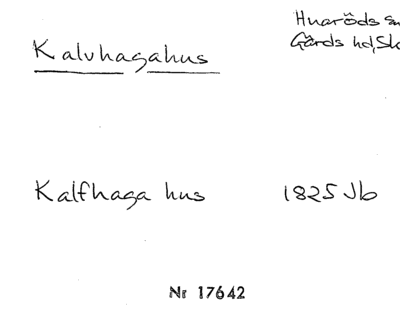 Kalvhagahus
Huaröds
Gärds hd,
Kalfhaga hus 1825 Jb
Nr 17642